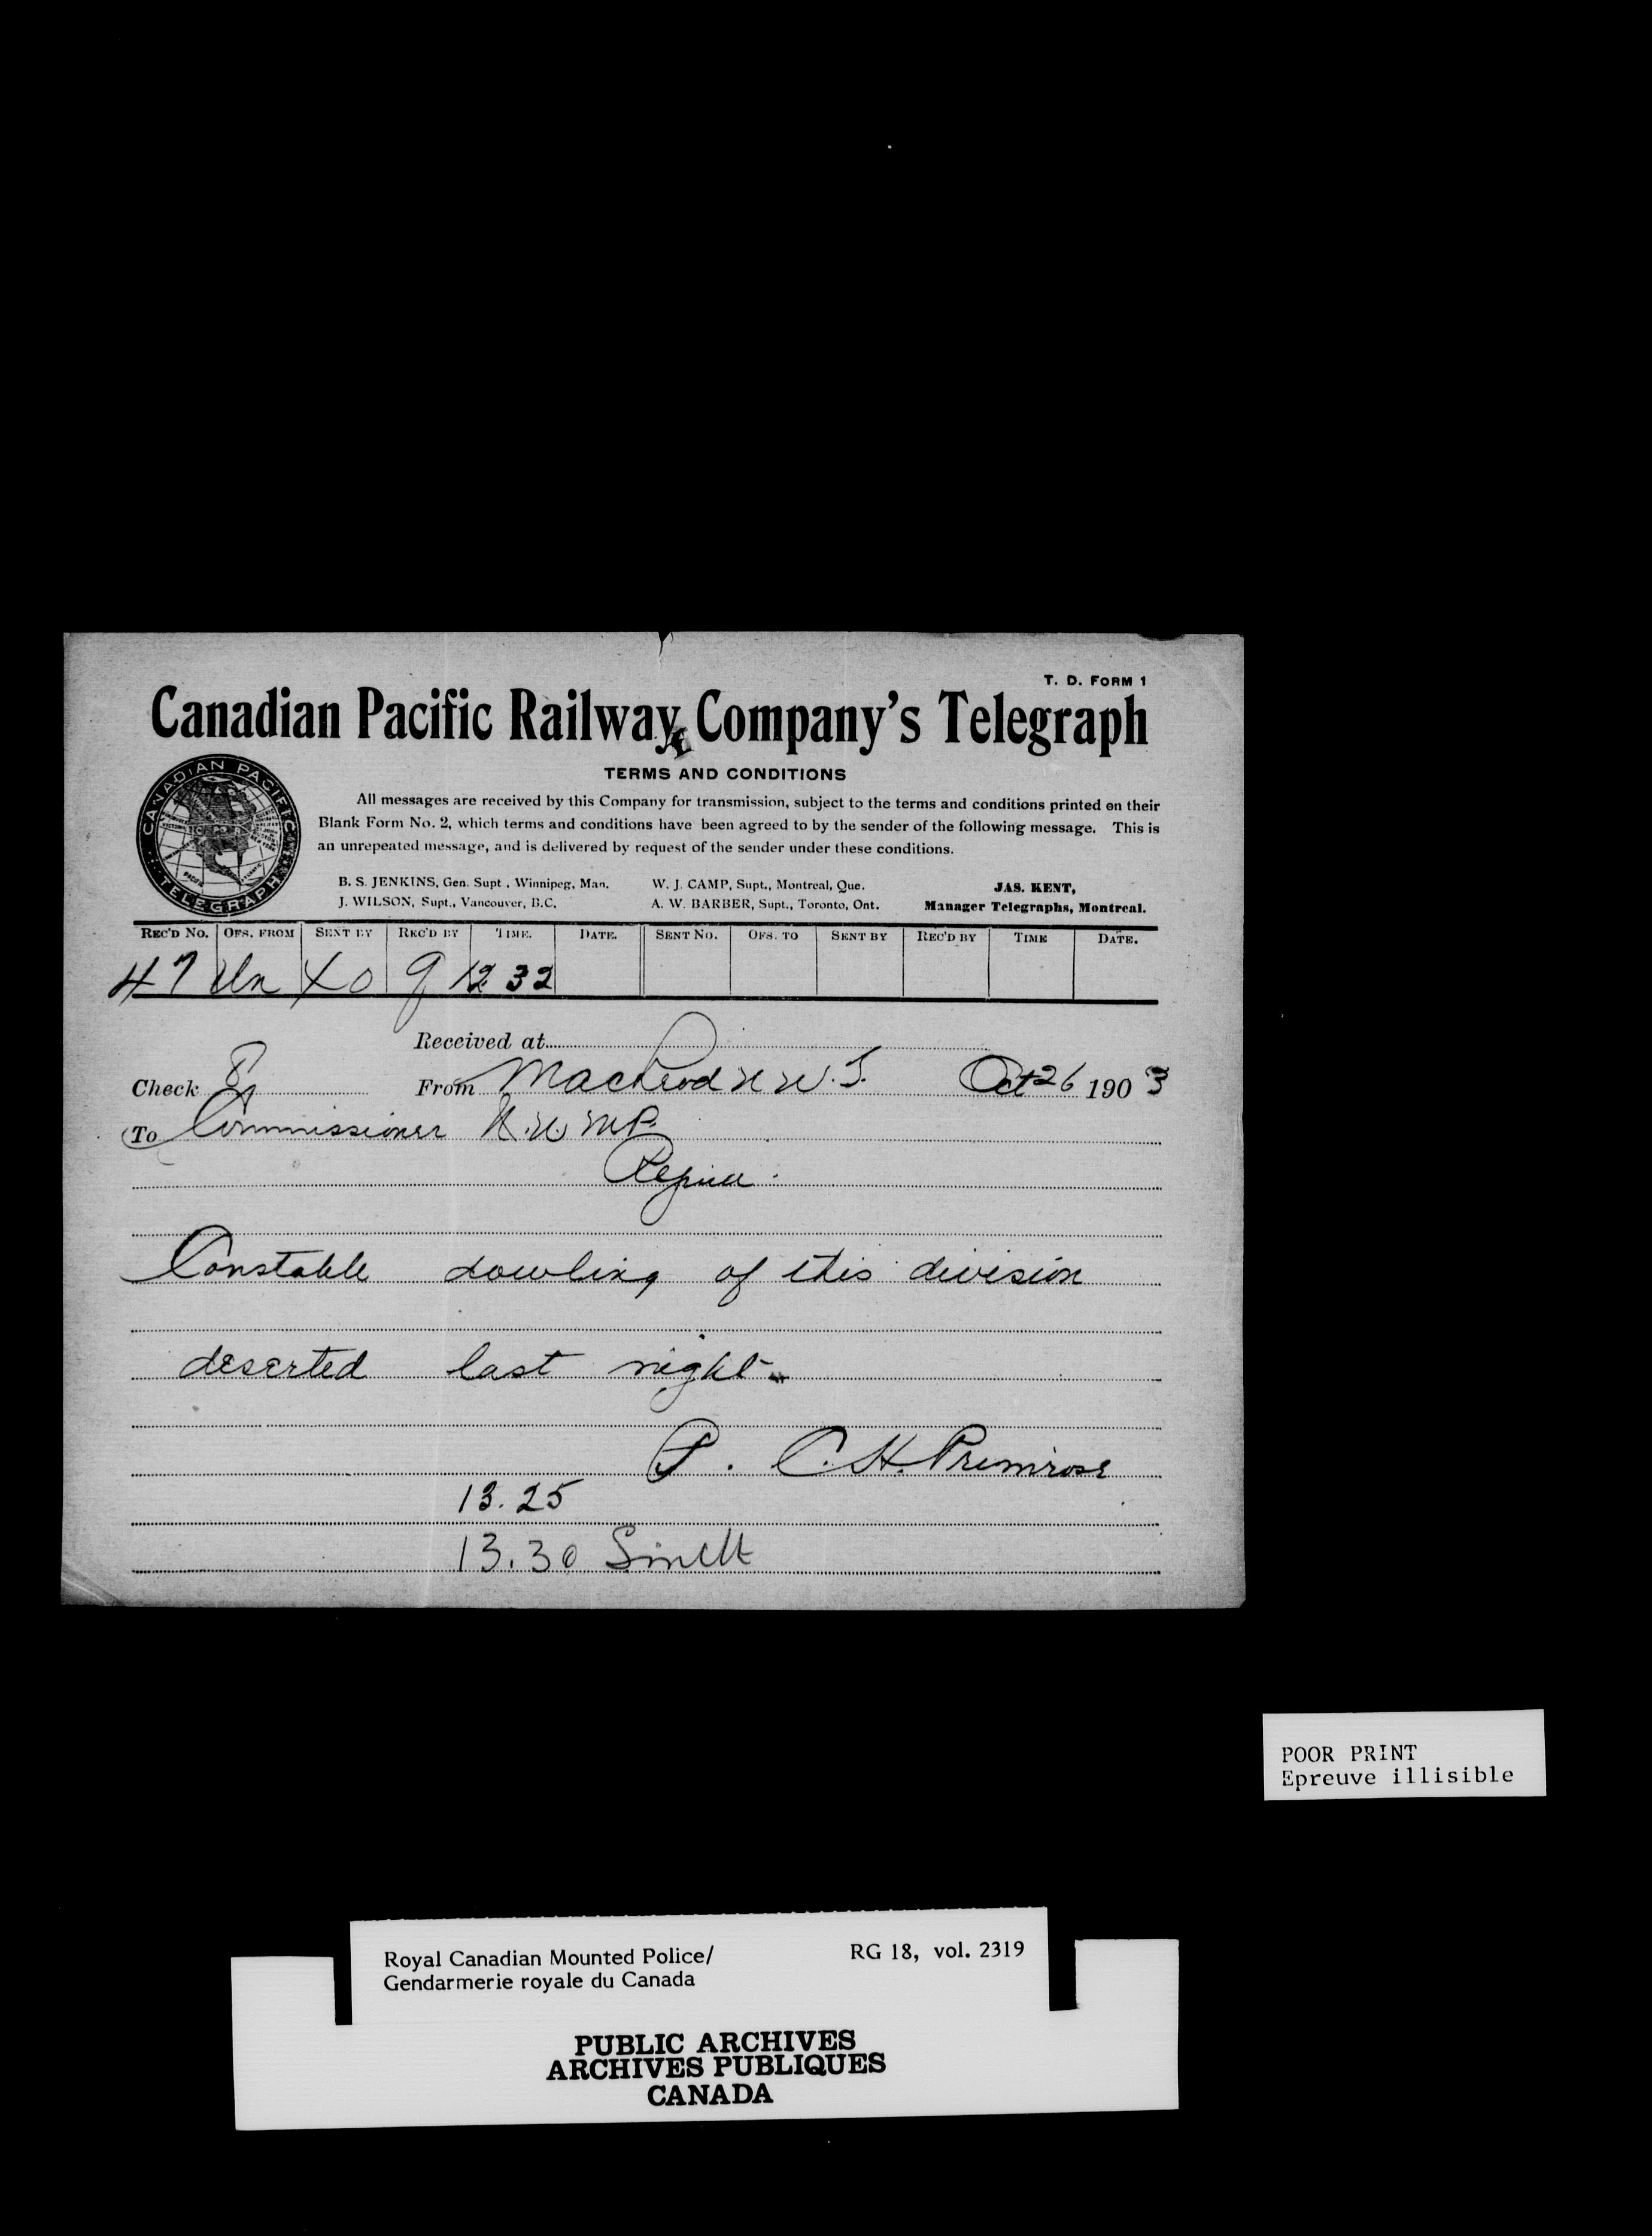 T. D. FORM 1
Canadian Pacific Railway Company's Telegraph
CANADIAN PACIFIC
TELEGRAPH
TERMS AND CONDITIONS
All messages are received by this Company for transmission, subject to the terms and conditions printed on their
Blank Form No. 2, which terms and conditions have been agreed to by the sender of the following message. This is
an unrepeated message, and is delivered by request of the sender under these conditions.
B. S. JENKINS, Gen. Supt., Winnipeg, Man. W. J. CAMP, Supt., Montreal, Que. JAS. KENT,
J. WILSON, Supt., Vancouver, B.C. A. W. BARBER, Supt., Toronto, Ont. Manager Telegraphs, Montreal.
REC'D No. OFS. FROM SENT BY REC'D BY TIME. DATE. SENT No. OFS. TO SENT BY REC'D BY TIME DATE.
47 12 32
Received at
Check From Macleod N.W.T. Oct 26 1903
To Commissioner N.W.M.P.
Regina.
Constable dowling of this division
deserted last night
P. C. H. Primrose
13.25
13.30
POOR PRINT
Epreuve illisible
Royal Canadian Mounted Police/ RG 18, vol. 2319
Gendarmerie royale du Canada
PUBLIC ARCHIVES
ARCHIVES PUBLIQUES
CANADA